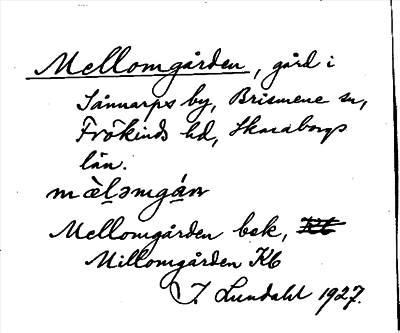 Mellomgården, gård i
Sännarps by, Brismene sn,
Frökinds hd, Skaraborgs
län.
mèl̠əmgá̠ɳ
Mellomgården bek,
Millomgården Kb
I. Lundahl 1927.